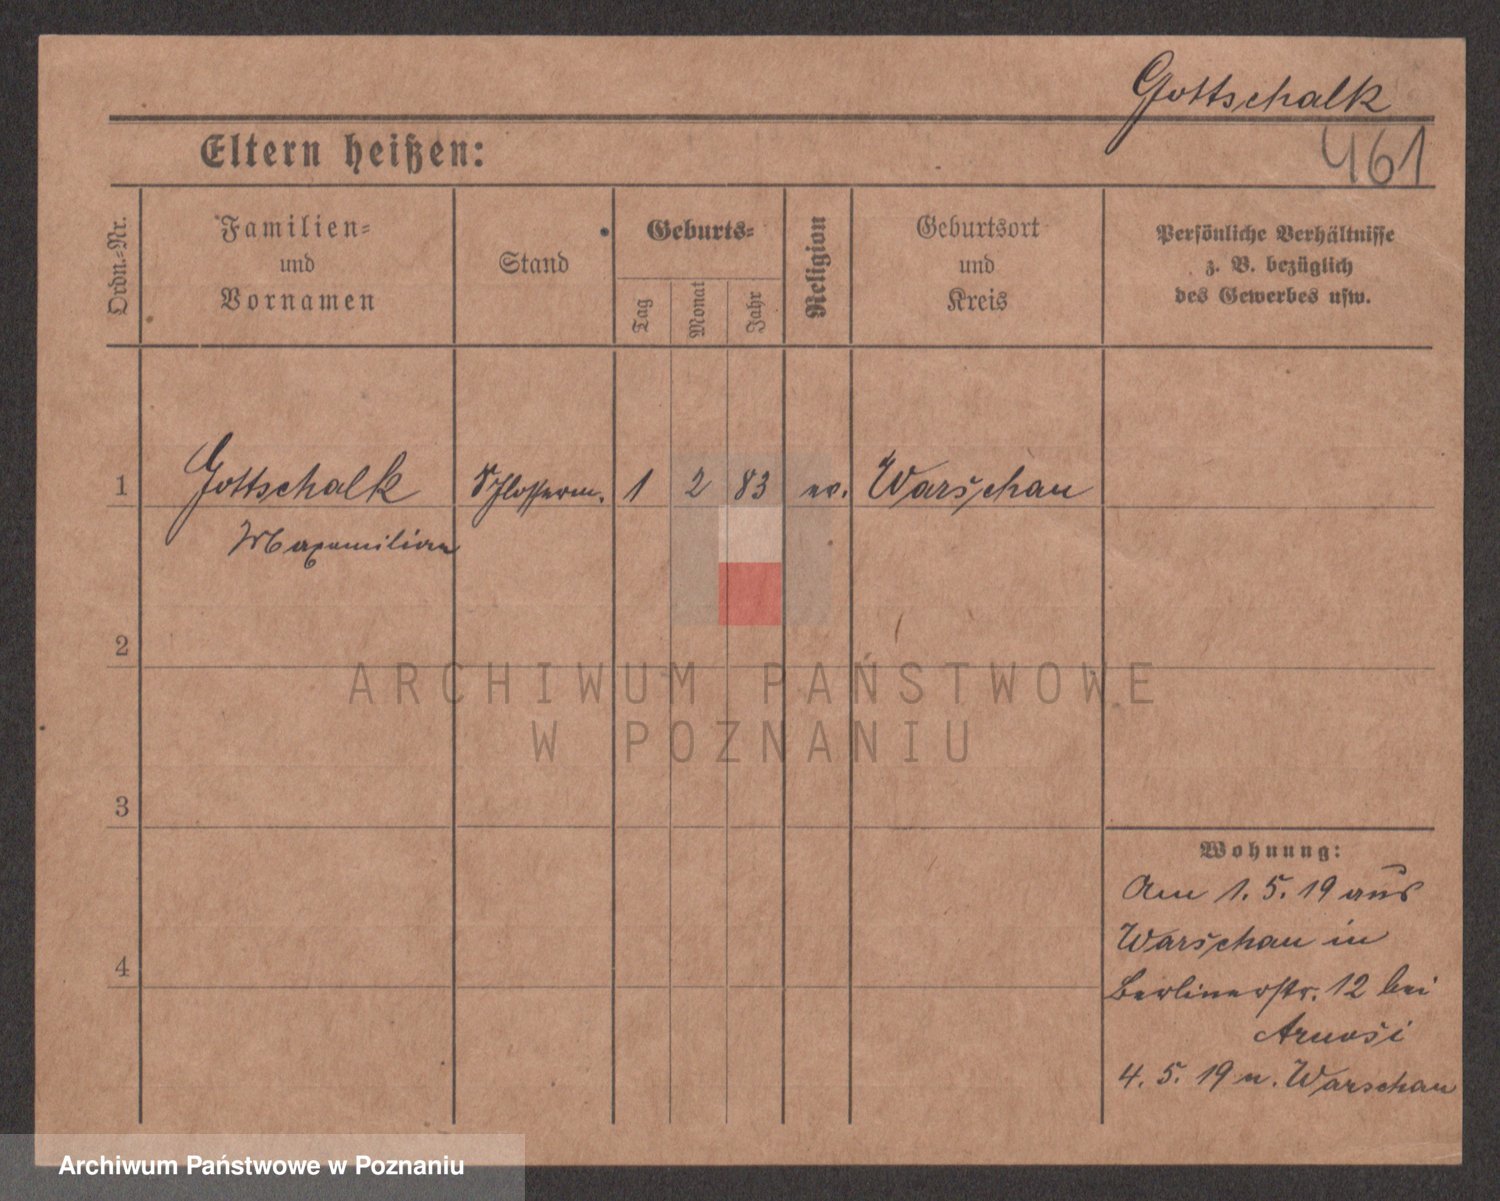 Gottschalk
461
Eltern heißen:
Ordn.-Nr.
Familien-
und
Vornamen
Stand
Geburts-
Tag
Monat
Jahr
Religion
Geburtsort
und
Kreis
Persönliche Verhältnisse
z. B. bezüglich
des Gewerbes usw.
1 Gottschalk Schlosserm. 1 2 83 ev. Warschau
Maxomilian
2
ARCHIWUM PAŃSTWOWE
W POZNANIU
3
Wohnung:
Am 1. 5. 19 aus
Warschau in
4
Berlinerstr. 12 bei
4. 5. 19 n. Warschau
Archiwum Państwowe w Poznaniu